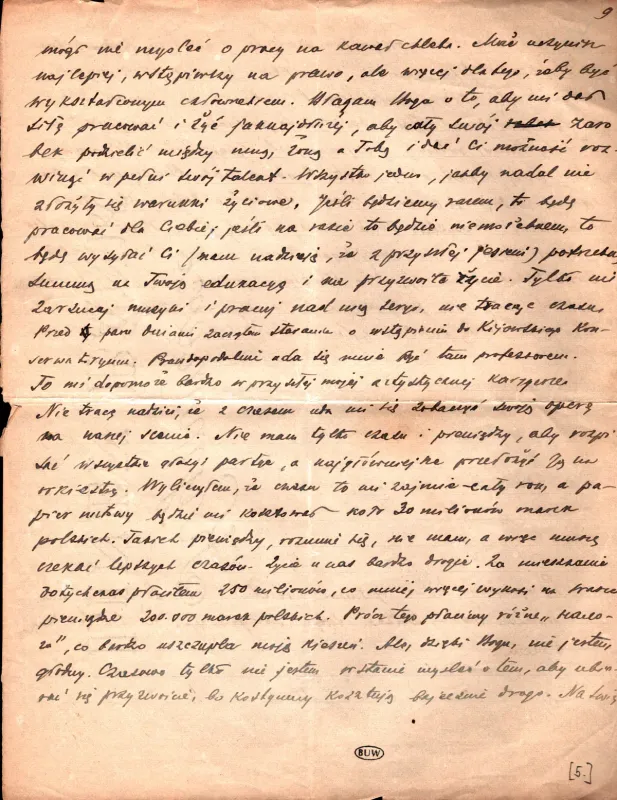 9
mógł nie myśleć o pracy na kawał chleba. Masz uczynić
najlepiej, wstąpiwszy na prawo, ale więcej dlatego, żeby być
wykształconym człowiekiem. Błagam Boga o to, aby mi dał
siłę pracować i żyć jaknajdłużej, aby cały swój zaro
bek podzielić między mną, żoną a Tobą i dać Ci możność roz
winąć w pełni swój talent. Wszystko jedno, jakby nadal nie
złożyły się warunki życiowe. Jeśli będziemy razem, to będę
pracować dla Ciebie; jeśli na razie to będzie niemożebnem, to
będę wysyłać Ci (mam nadzieję, że z przyszłej jesieni) potrzebną
summę na Twoją edukację i na przyzwoite życie. Tylko nie
zarzucaj muzyki i pracuj nad nią serjo, nie tracąc czasu.
Przed paru dniami zacząłem starania o wstąpienie do Kijowskiego Kon-
serwatoryum. Prawdopodobnie uda się mnie być tam profesorem.
To mi dopomoże bardzo w przyszłej mojej artystycznej karryerze.
Nie tracę nadziei, że z czasem uda mi się zobaczyć swoją operę
na naszej scenie. Nie mam tylko czasu i pieniędzy, aby rozpi
sać wszystkie głosy i partye, a najgłówniejsze przełożyć ją na
orkiestrę. Wyliczyłem, że czasu to mi zajmie cały rok, a pa-
pier nutowy będzie mi kosztował koło 30 milionów marek
polskich. Takich pieniędzy, rozumie się, nie mam, a więc muszę
czekać lepszych czasów. Życie u nas bardzo drogie. Za mieszkanie
dotychczas płaciłem 250 milionów, co mniej więcej wynosi na wasze
pieniądze 200.000 marek polskich. Prócz tego płacimy różne „нало-
ги", co bardzo uszczupla moją kieszeń. Ale, dzięki Bogu, nie jestem
głodny. Czasowo tylko nie jestem w stanie myśleć o tem, aby ubie-
rać się przyzwoicie, bo kostyumy kosztują bajecznie drogo. Na
BUW
[5.]